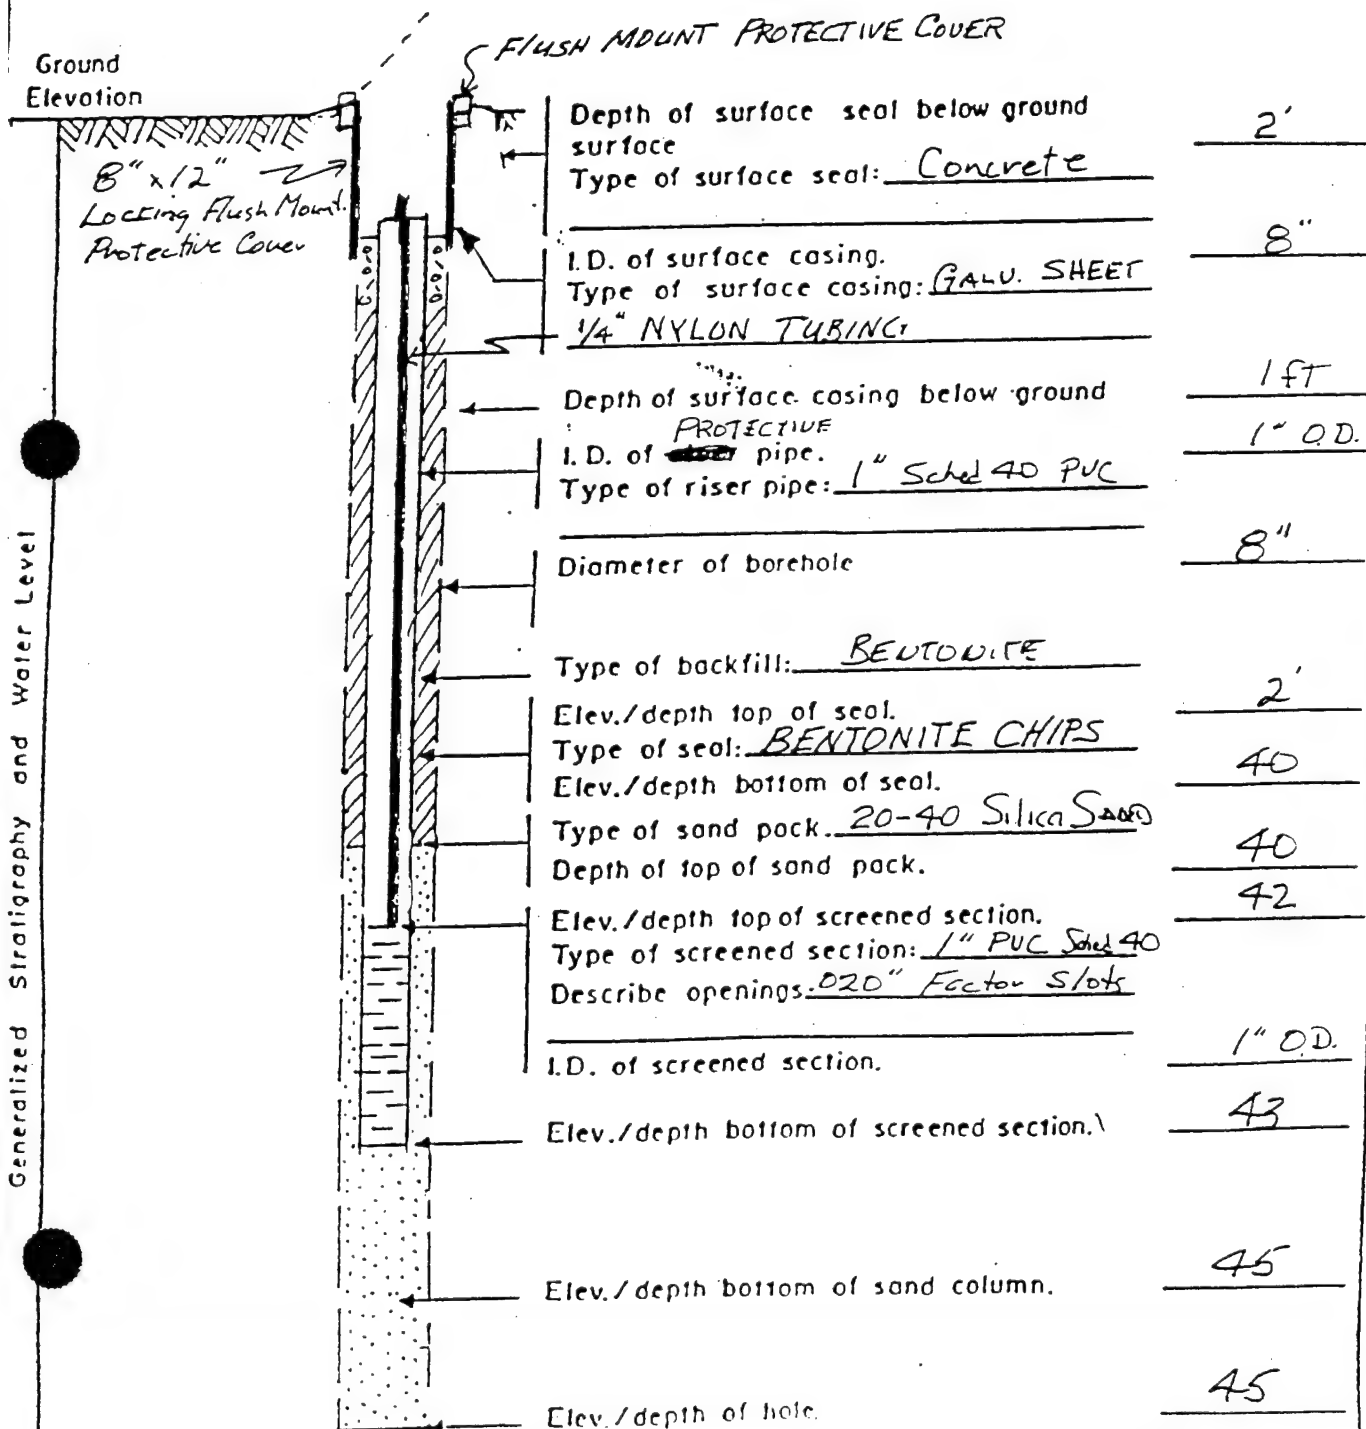 FLUSH MOUNT PROTECTIVE COVER
Ground
Elevation
8" x 12"
Locking Flush Mount
Protective Cover
Generalized Stratigraphy and Water Level
Depth of surface seal below ground
surface 2'
Type of surface seal: Concrete
I.D. of surface casing. 8"
Type of surface casing: GALV. SHEET
1/4" NYLON TUBING
Depth of surface casing below ground 1 FT
PROTECTIVE
I.D. of pipe. 1" O.D.
Type of riser pipe: 1" Sched 40 PVC
Diameter of borehole 8"
Type of backfill: BENTONITE
Elev./depth top of seal. 2'
Type of seal: BENTONITE CHIPS
Elev./depth bottom of seal. 40
Type of sand pack. 20-40 Silica SAND
Depth of top of sand pack. 40
Elev./depth top of screened section. 42
Type of screened section: 1" PVC Sched 40
Describe openings: .020" Slots
I.D. of screened section. 1" O.D.
Elev./depth bottom of screened section. 43
Elev./depth bottom of sand column. 45
Elev./depth of hole. 45